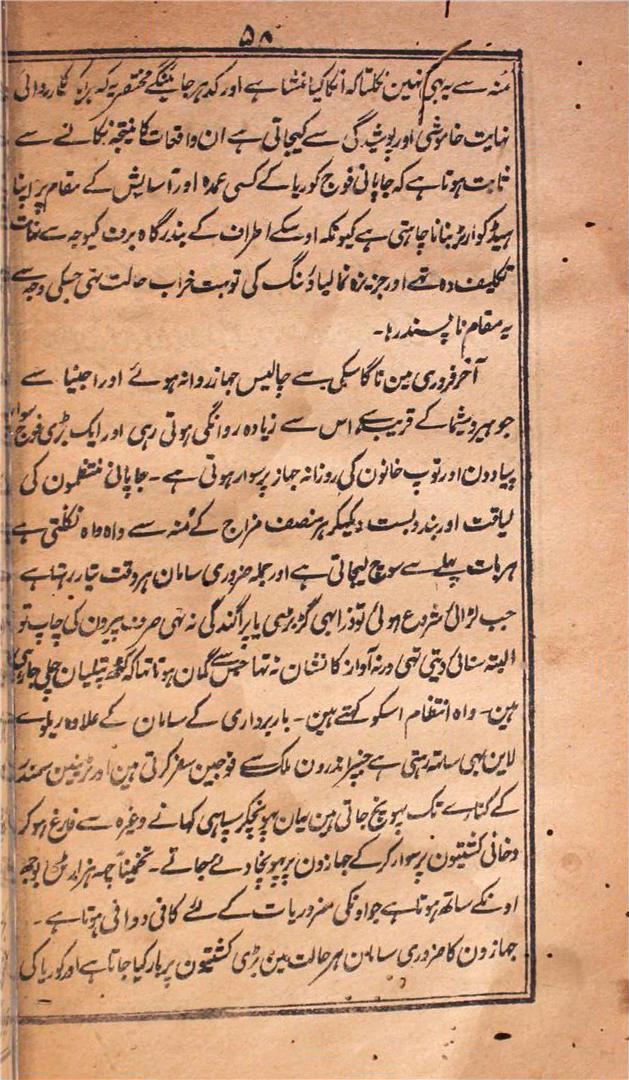 ۵۸
مُنہ سے یہ بہی نہین نکلتا کہ انکا کیا منشا ہے اور کدہر جائینگے مختصر یہ کہ ہر ایک کارروائی
نہایت خاموشی اور پوشیدگی سے کیجاتی ہے ان واقعات کا نتیجہ نکالنے سے
ثابت ہوتا ہے کہ جاپانی فوج کوریا کے کسی عمدہ اور آسایش کے مقام پر اپنا
ہیڈ کوارٹر بنانا چاہتی ہے کیونکہ اوسکے اطراف کے بندرگاہ برف کیوجہ سے نہایت
تکلیف دہ تہے اور جزیرہ نما لیاؤٹنگ کی تو بہت خراب حالت تہی جسکی وجہ سے
یہ مقام ناپسند رہا۔
آخر فروری مین ناگاسکی سے چالیس جہاز روانہ ہوئے اور اجنیا سے
جو ہیروشیما کے قریب ہے اس سے زیادہ روانگی ہوتی رہی اور ایک بڑی فوج سوار
پیادون اور توپ خانون کی روزانہ جہاز پر سوار ہوتی ہے۔ جاپانی منتظمون کی
لیاقت اور بندوبست دیکہکر ہر منصف مزاج کے مُنہ سے واہ واہ نکلتی ہے
ہر بات پہلے سے سوچ لیجاتی ہے اور جملہ ضروری سامان ہر وقت تیار رہتا ہے
جب لڑائی شروع ہوئی تو ذرا بہی گڑبڑی یا پراگندگی نہ تہی صرف پیرون کی چاپ تو
البتہ سنائی دیتی تہی ورنہ آواز کا نشان نہ تہا جس سے گمان ہوتا تہا کہ کٹھ پتلیان چلی جا رہی
ہین۔ واہ انتظام اسکو کہتے ہین۔ باربرداری کے سامان کے علاوہ ریلوے
لاین بہی ساتہ رہتی ہے جنپر اندرون ملک سے فوجین سفر کرتی ہین اور ٹرینین سمندر
کے کنارے تک پہونچ جاتی ہین یہان پہونچکر سپاہی کہانے وغیرہ سے فارغ ہو کر
دخانی کشتیون پر سوار کر کے جہازون پر پہونچا دئے جاتے۔ تخمیناً چہہ ہزار ٹن بوجہ
اونکے ساتھ ہوتا ہے جو اونکی ضروریات کے لئے کافی و وافی ہوتا ہے۔
جہازون کا ضروری سامان ہر حالت مین بڑی کشتیون پر بار کیا جاتا ہے اور کوریا کی